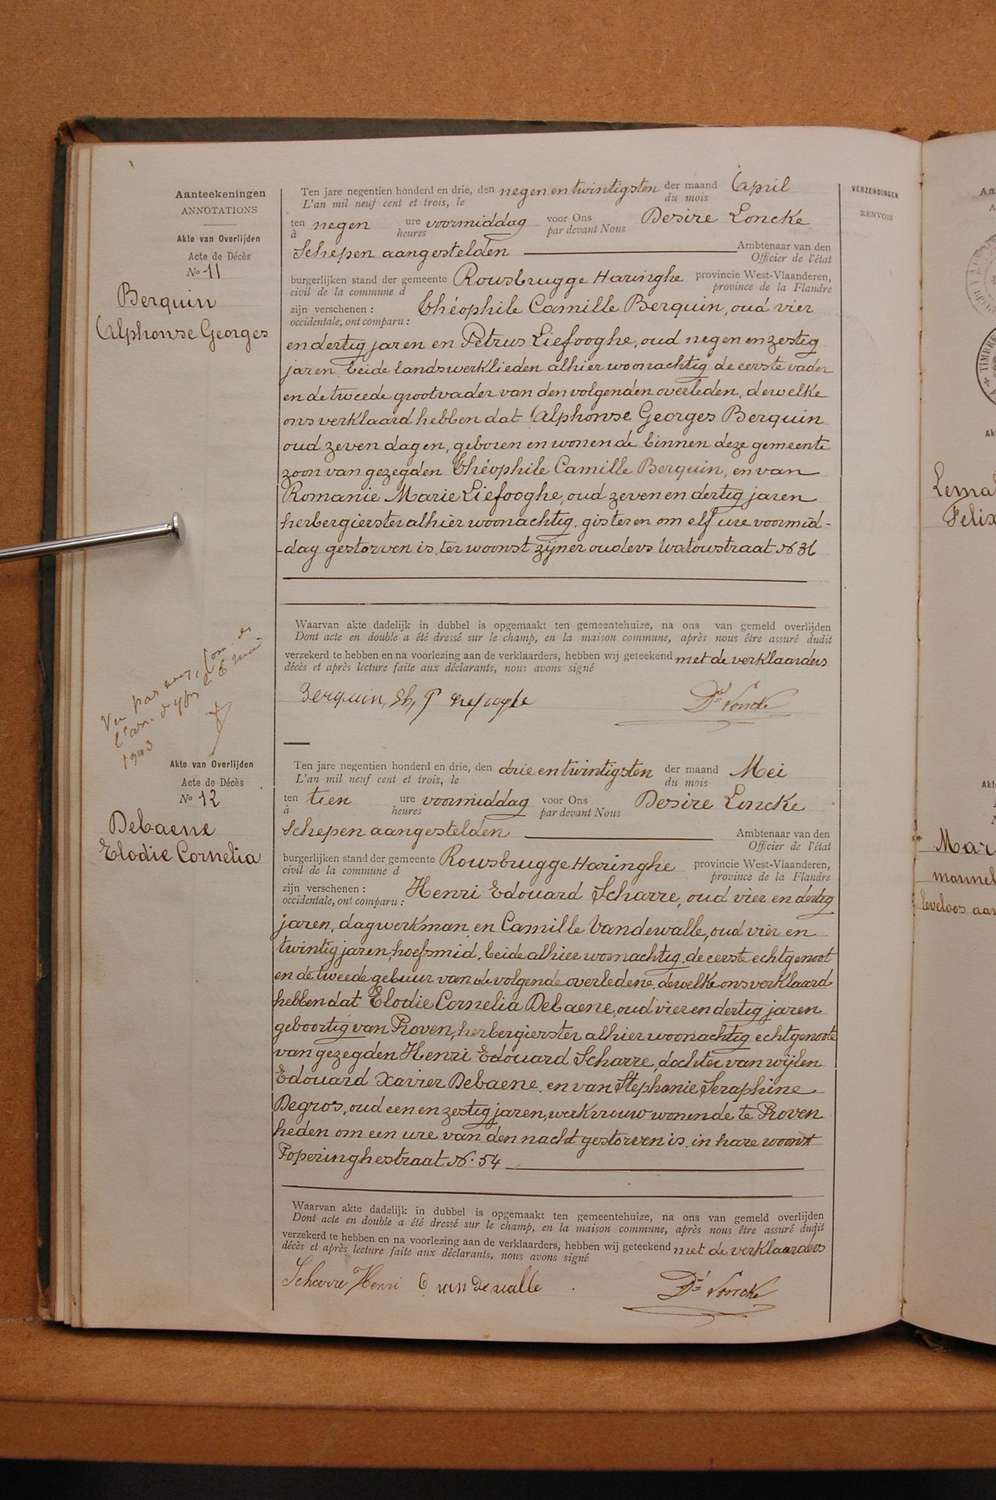 Aanteekeningen
ANNOTATIONS
Akte van Overlijden
Acte de Décès
No 11
Berquin
Alphonse Georges
Ten jare negentien honderd en drie, den negen en twintigsten der maand April
L'an mil neuf cent et trois, le du mois
ten negen ure voormiddag voor Ons Desire Loncke
à heures par devant Nous
Schepen aangestelden Ambtenaar van den
Officier de l'état
burgerlijken stand der gemeente Rousbrugge Haringhe provincie West-Vlaanderen,
civil de la commune d province de la Flandre
zijn verschenen : Théophile Camille Berquin, oud vier
occidentale, ont comparu :
en dertig jaren en Petrus Liefooghe, oud negen en zestig
jaren, beide landswerklieden alhier woonachtig de eerste vader
en de tweede grootvader van den volgenden overleden, dewelke
ons verklaard hebben dat Alphonse Georges Berquin
oud zeven dagen, geboren en wonende binnen deze gemeente
zoon van gezegden Théophile Camille Berquin, en van
Romanie Marie Liefooghe, oud zeven en dertig jaren
herbergierster alhier woonachtig, gisteren om elf ure voormid-
-dag gestorven is, ter woonst zijner ouders Watoustraat No 36
Waarvan akte dadelijk in dubbel is opgemaakt ten gemeentehuize, na ons van gemeld overlijden
Dont acte en double a été dressé sur le champ, en la maison commune, après nous être assuré dudit
verzekerd te hebben en na voorlezing aan de verklaarders, hebben wij geteekend met de verklaarders
décès et après lecture faite aux déclarants, nous avons signé
Berquin, Th, P Liefooghe Dé Loncke
Vu par nous,
1903
Akte van Overlijden
Acte de Décès
No 12
Debaene
Elodie Cornelia
Ten jare negentien honderd en drie, den drie en twintigsten der maand Mei
L'an mil neuf cent et trois, le du mois
ten tien ure voormiddag voor Ons Desire Loncke
à heures par devant Nous
Schepen aangestelden Ambtenaar van den
Officier de l'état
burgerlijken stand der gemeente Rousbrugge Haringhe provincie West-Vlaanderen,
civil de la commune d province de la Flandre
zijn verschenen : Henri Edouard Scharre, oud vier en dertig
occidentale, ont comparu :
jaren, dagwerkman en Camille Vandewalle, oud vier en
twintig jaren, hoefsmid, beide alhier woonachtig, de eerste echtgenoot
en de tweede gebuur van de volgende overledene, dewelke ons verklaard
hebben dat Elodie Cornelia Debaene, oud vier en dertig jaren
geboortig van Proven, herbergierster alhier woonachtig echtgenote
van gezegden Henri Edouard Scharre, dochter van wijlen
Edouard Xavier Debaene, en van Stephanie Seraphine
Degros, oud een en zestig jaren, werkvrouw wonende te Proven
heden om een ure van den nacht gestorven is, in hare woonst
Poperinghestraat No. 54
Waarvan akte dadelijk in dubbel is opgemaakt ten gemeentehuize, na ons van gemeld overlijden
Dont acte en double a été dressé sur le champ, en la maison commune, après nous être assuré dudit
verzekerd te hebben en na voorlezing aan de verklaarders, hebben wij geteekend met de verklaarders
décès et après lecture faite aux déclarants, nous avons signé
Scharre Henri C vandewalle Dé Loncke
VERZENDINGEN
RENVOIS
Felix